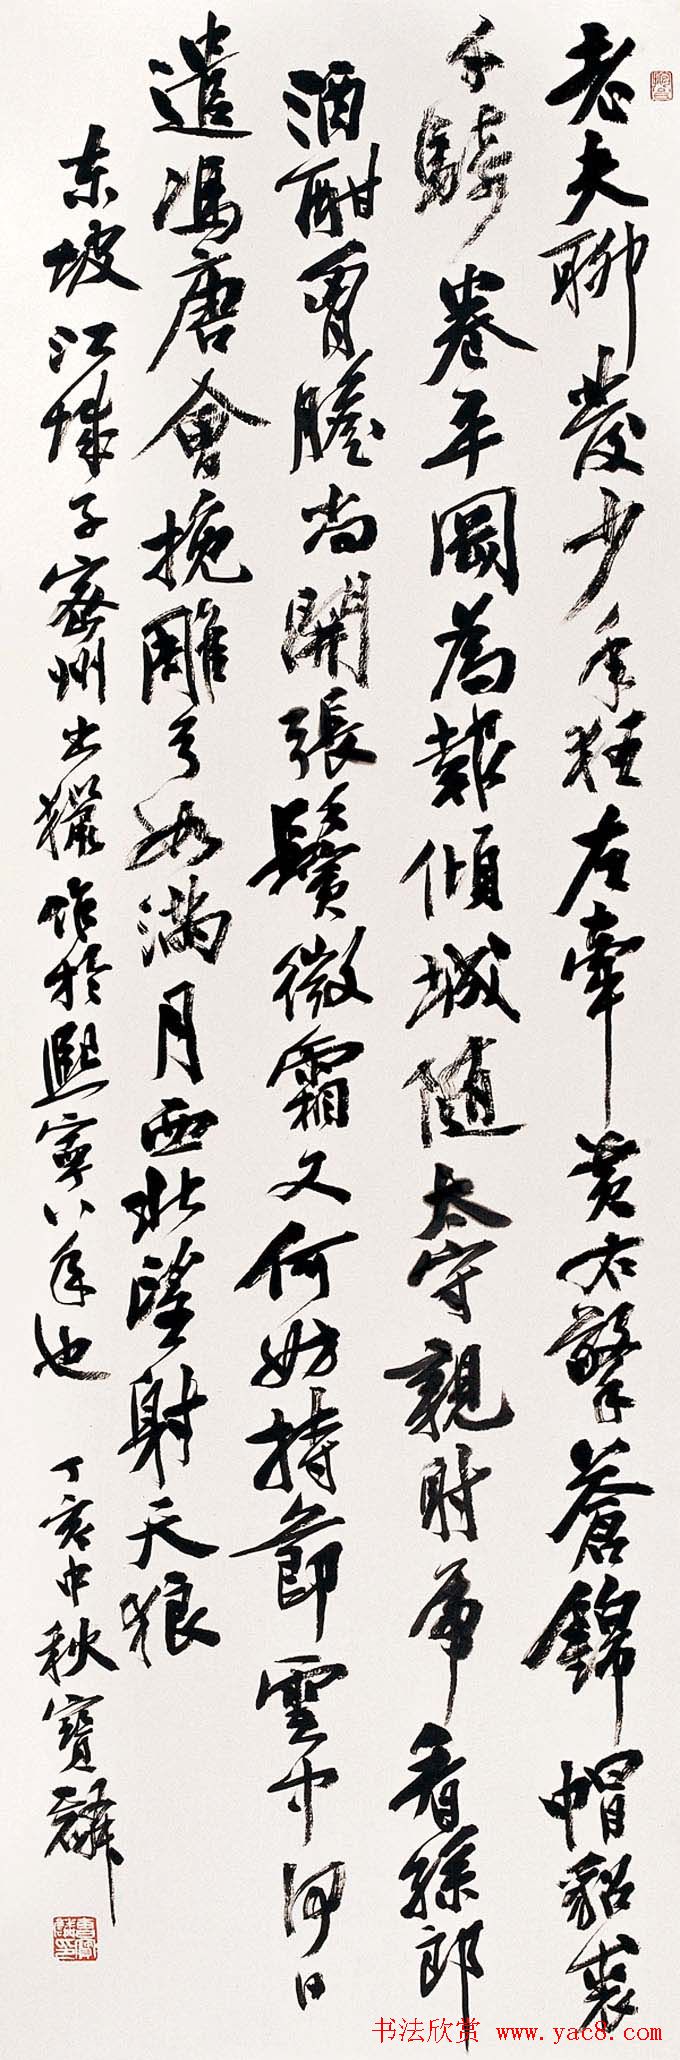 老夫聊發少年狂左牽黃右擎蒼錦帽貂裘
千騎卷平岡為報傾城隨太守親射虎看孫郎
酒酣胷膽尚開張鬢微霜又何妨持節雲中何日
遣馮唐會挽雕弓如滿月西北望射天狼
东坡江城子密州出獵作於熙寧八年也 丁亥中秋寶麟
曹寶麟印
书法欣赏 www.yac8.com